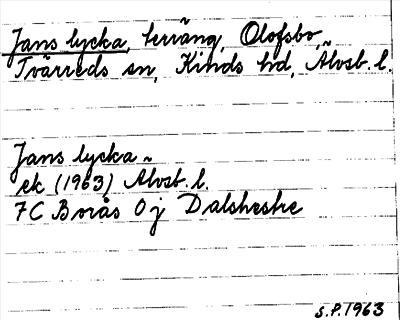 Jans lycka, terräng, Olofsbo,
Tvärreds sn, Kinds hd, Älvsb. l.
Jans lycka
ek (1963) Älvsb. l.
7C Borås 0j Dalshestra
S.P. 1963